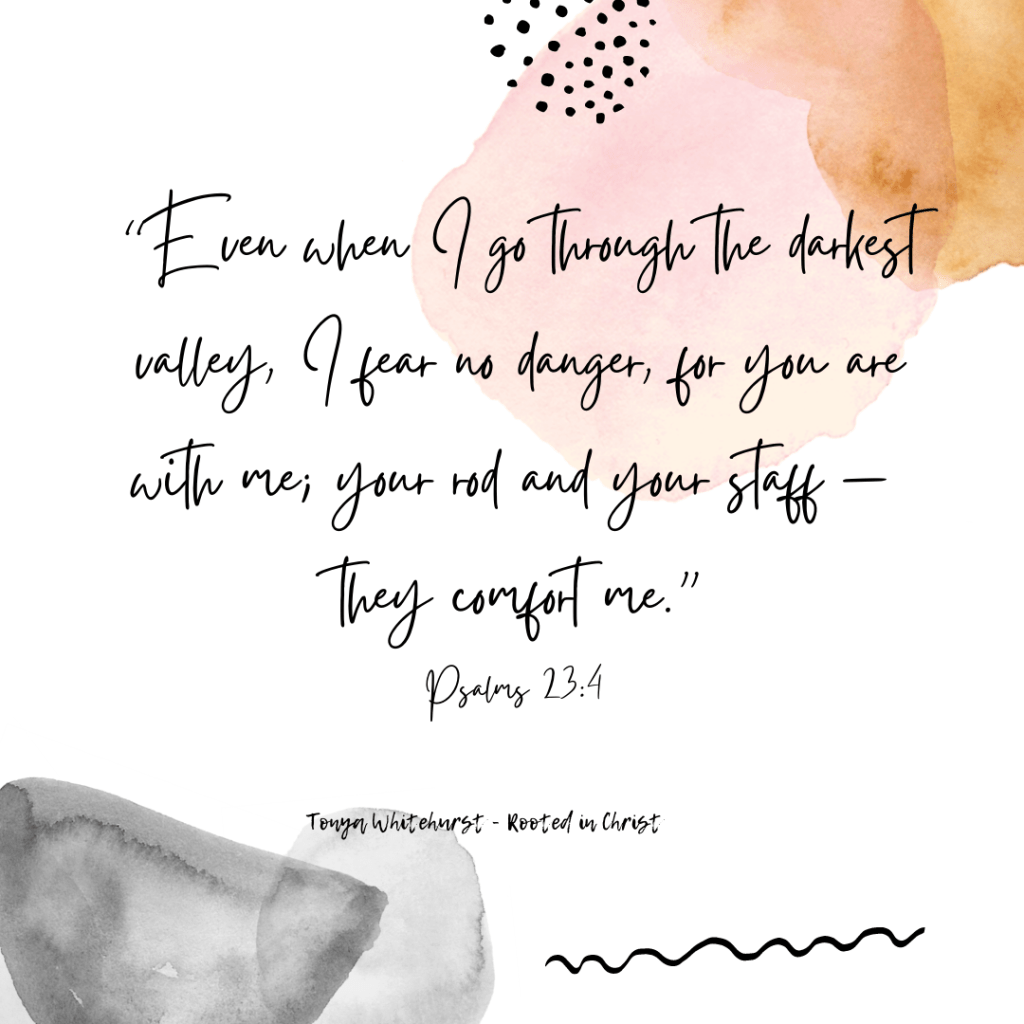 “Even when I go through the darkest
valley, I fear no danger, for you are
with me; your rod and your staff –
they comfort me.”
Psalms 23:4
Tonya Whitehurst - Rooted in Christ